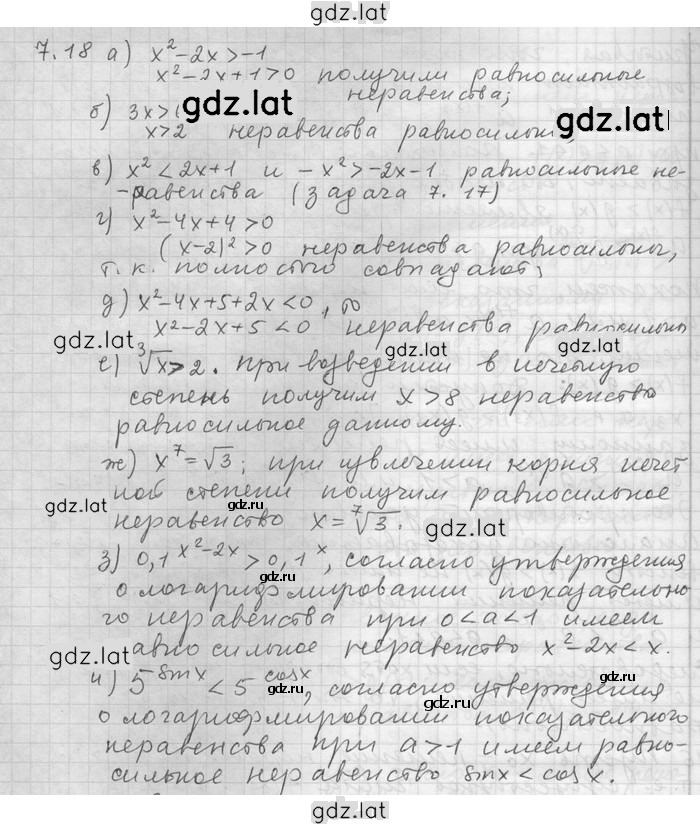 gdz.lat
7.18 а) x²-2x>-1
x²-2x+1>0 получили равносильные
неравенства;
б) 3x>
gdz.lat
x>2 неравенства равносильн
gdz.lat
в) x²<2x+1 и -x²>-2x-1 равносильные не-
-равенства (задача 7.17)
г) x²-4x+4>0
(x-2)²>0 неравенства равносильны,
т.к. полностью совпадают;
д) x²-4x+5+2x<0, то
x²-2x+5<0 неравенства
gdz.lat
е) ³√x>2. при возведении в нечетную
gdz.lat
степень получим x>8 неравенство
равносильное данному.
ж) x⁷=√3; при извлечении корня нечет
ной степени получим равносильное
gdz.lat
неравенство x=⁷√3.
gdz.lat
з) 0,1^(x²-2x)>0,1^x, согласно утверждения
gdz.ru
о логарифмировании показательно
го неравенства при 0<a<1 имеем
равносильное неравенство x²-2x<x.
gdz.lat
и) 5^(sinx)<5^(cosx), согласно утверждения
gdz.ru
о логарифмировании показательного
неравенства при a>1 имеем равно-
сильное неравенство sinx<cosx.
gdz.lat